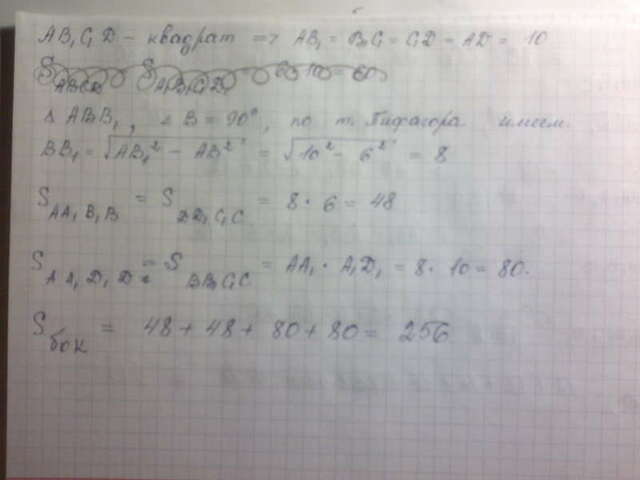 AB₁C₁D - квадрат => AB₁ = B₁C₁ = C₁D = AD = 10
S ABCD S A₁B₁C₁D₁ = 6·10 = 60
Δ ABB₁, ∠B = 90°, по т. Пифагора имеем
BB₁ = √AB₁² - AB² = √10² - 6² = 8
S AA₁B₁B = S DD₁C₁C = 8 · 6 = 48
S AA₁D₁D = S BB₁C₁C = AA₁ · A₁D₁ = 8 · 10 = 80.
S бок = 48 + 48 + 80 + 80 = 256